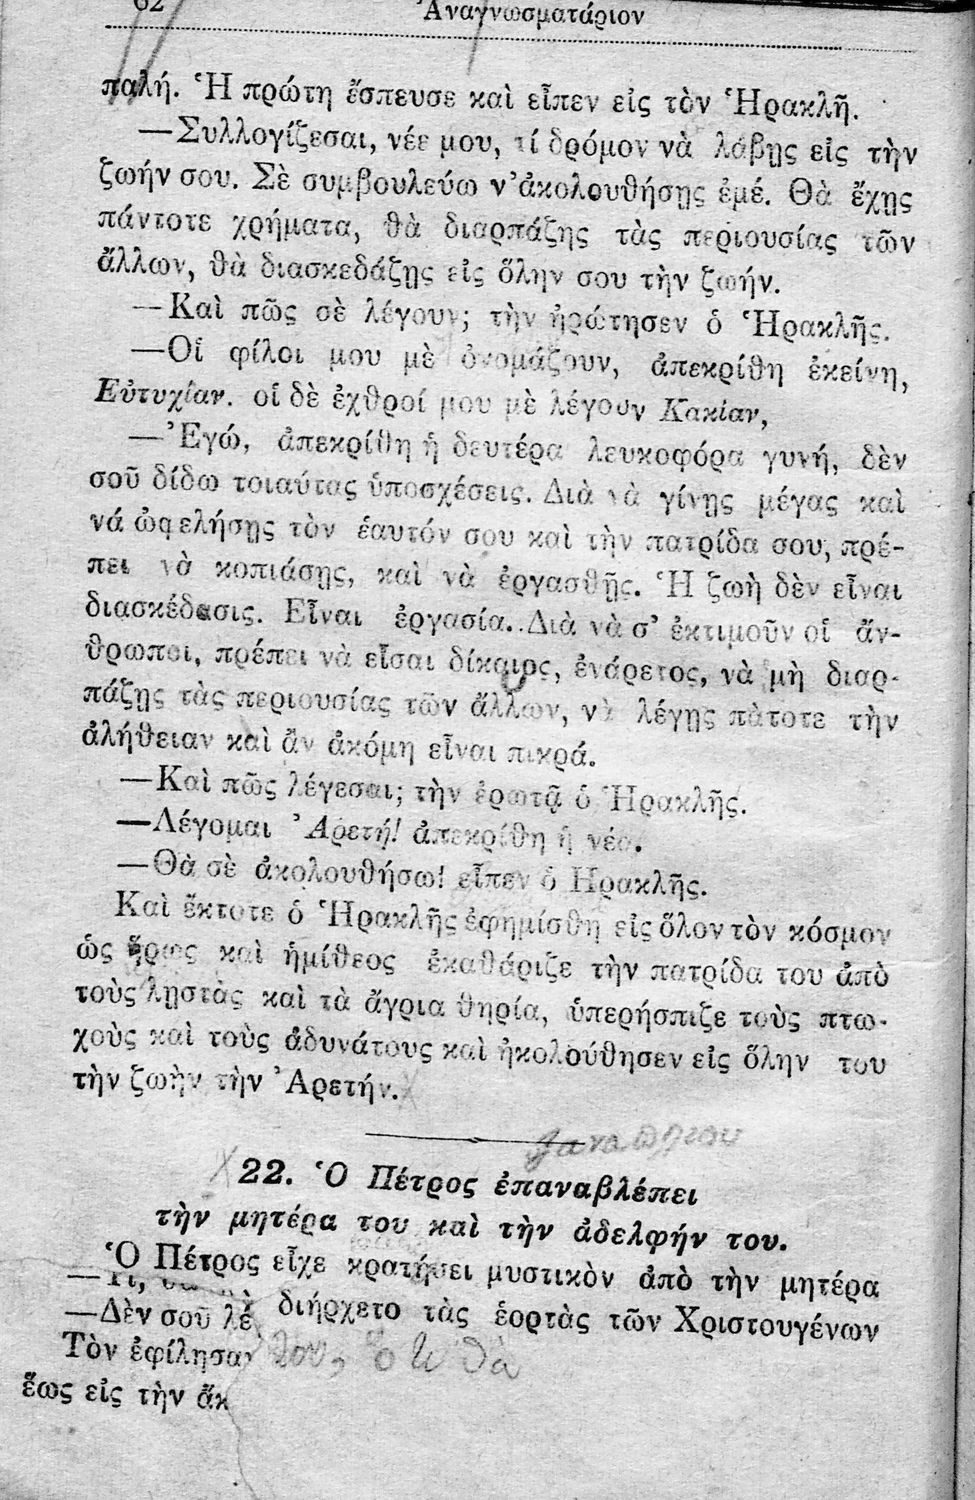 62 Ἀναγνωσματάριον
παλή. Ἡ πρώτη ἔσπευσε καὶ εἶπεν εἰς τὸν Ἡρακλῆ.
—Συλλογίζεσαι, νέε μου, τί δρόμον νὰ λάβῃς εἰς τὴν
ζωήν σου. Σὲ συμβουλεύω ν' ἀκολουθήσῃς ἐμέ. Θὰ ἔχῃς
πάντοτε χρήματα, θὰ διαρπάζης τὰς περιουσίας τῶν
ἄλλων, θὰ διασκεδάζῃς εἰς ὅλην σου τὴν ζωήν.
—Καὶ πῶς σὲ λέγουν; τὴν ἠρώτησεν ὁ Ἡρακλῆς.
—Οἱ φίλοι μου μὲ ὀνομάζουν, ἀπεκρίθη ἐκείνη,
Εὐτυχίαν. οἱ δὲ ἐχθροί μου μὲ λέγουν Κακίαν,
—Ἐγώ, ἀπεκρίθη ἡ δευτέρα λευκοφόρα γυνή, δὲν
σοῦ δίδω τοιαύτας ὑποσχέσεις. Διὰ νὰ γίνῃς μέγας καὶ
νά ὠφελήσῃς τὸν ἑαυτόν σου καὶ τὴν πατρίδα σου, πρέ-
πει νὰ κοπιάσῃς, καὶ νὰ ἐργασθῇς. Ἡ ζωὴ δὲν εἶναι
διασκέδασις. Εἶναι ἐργασία. Διὰ νὰ σ' ἐκτιμοῦν οἱ ἄν-
θρωποι, πρέπει νὰ εἶσαι δίκαιος, ἐνάρετος, νὰ μὴ διαρ-
πάζῃς τὰς περιουσίας τῶν ἄλλων, νὰ λέγῃς πὰτοτε τὴν
ἀλήθειαν καὶ ἂν ἀκόμη εἶναι πικρά.
—Καὶ πῶς λέγεσαι; τὴν ἐρωτᾷ ὁ Ἡρακλῆς.
—Λέγομαι Ἀρετή! ἀπεκρίθη ἡ νέα.
—Θὰ σὲ ἀκολουθήσω! εἶπεν ὁ Ἡρακλῆς.
Καὶ ἔκτοτε ὁ Ἡρακλῆς ἐφημίσθη εἰς ὅλον τὸν κόσμον
ὡς ἥρως καὶ ἡμίθεος ἐκαθάριζε τὴν πατρίδα του ἀπὸ
τοὺς λῃστὰς καὶ τὰ ἄγρια θηρία, ὑπερήσπιζε τοὺς πτω-
χοὺς καὶ τοὺς ἀδυνάτους καὶ ἠκολούθησεν εἰς ὅλην του
τὴν ζωὴν τὴν Ἀρετήν.
22. Ὁ Πέτρος ἐπαναβλέπει
τὴν μητέρα του καὶ τὴν ἀδελφήν του.
Ὁ Πέτρος εἶχε κρατήσει μυστικὸν ἀπὸ τὴν μητέρα
—Δὲν σοῦ λέ διήρχετο τὰς ἑορτὰς τῶν Χριστουγένων
Τὸν ἐφίλησαν
ἕως εἰς τὴν ἄκ